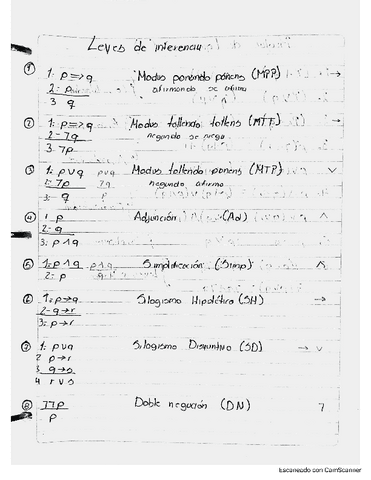 Leyes de inferencia
① 1: p⇒q Modus ponendo ponens (MPP) →
2: p afirmando se afirma
3 q
② 1: p⇒q Modus tollendo tollens (MTT) →
2- ¬q negando se niega
3. ¬p
③ 1: p∨q p∨q Modus tollendo ponens (MTP) ∨
2: ¬p ¬q negando afirmo
3: q p
④ 1 p Adjunción (Ad) ∧
2: q
3: p∧q
⑤ 1: p∧q p∧q Simplificación (Simp) ∧
2: p q
⑥ 1: p→q Silogismo Hipotético (SH) →
2- q→r
3: p→r
⑦ 1: p∨q Silogismo Disyuntivo (SD) → ∨
2 p→r
3: q→s
4 r∨s
⑧ ¬¬p Doble negación (DN) ¬
p
Escaneado con CamScanner